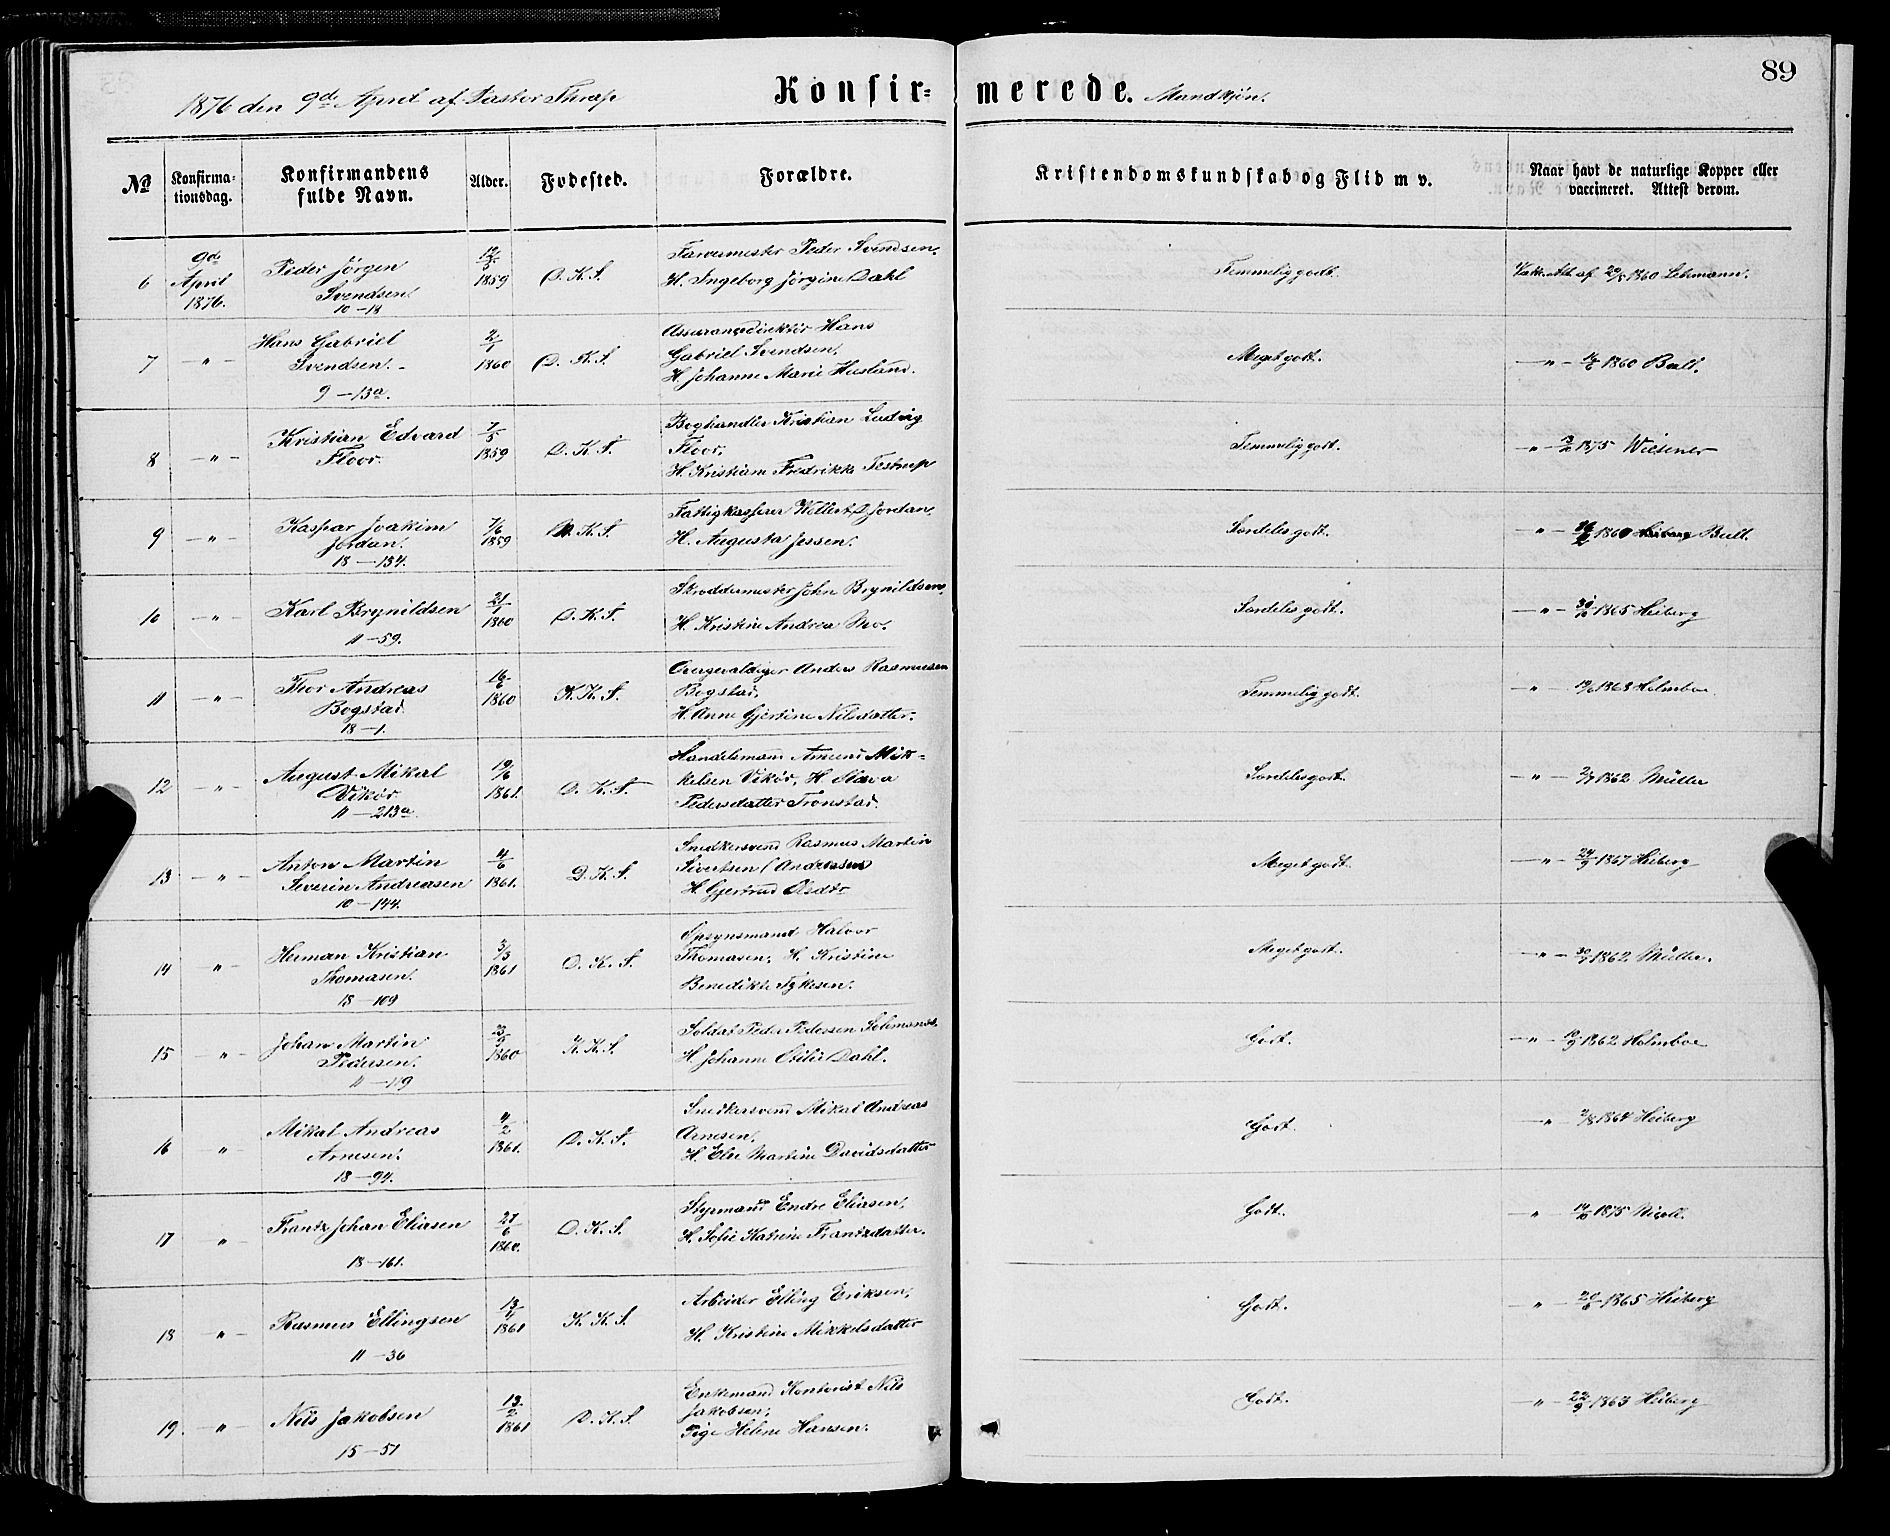 89
1876 den 9de April af Pastor Thrap
Konfir= merede. Mandkjøn.
No
Konfirma-
tionsdag.
Konfirmandens
fulde Navn.
Alder.
Fodested.
Forældre.
Kristendomskundskab og Flid m v.
Naar havt de naturlige Kopper eller
vaccineret. Attest derom.
6
9de
April
1876.
Peder Jörgen
Svendsen.
10-18
1859
D. K. S.
Farvermester Peder Svendsen,
H. Ingeborg Jörgine Dahl
Temmelig godt.
Vakk. Att. af 1860 Lehmann.
7
-"-
Hans Gabriel
Svendsen.
9-13a.
2/1
1860
D. K. S.
Assurancedirektör Hans
Gabriel Svendsen,
H. Johanne Marie Husland.
Meget godt.
-"- 1860 Bull.
8
-"-
Kristian Edvard
Floor.
7/5
1859
D. K. S.
Boghandler Kristian Ludvig
Floor,
H. Kristiane Fredrikke Testrup
Temmelig godt.
-"- 1875 Wiesener
9
-"-
Kaspar Joakim
Jordan.
18-134.
7/6
1859
D. K. S.
Fattigkasserer Wollert D Jordan,
H. Augusta Jessen.
Særdeles godt.
-"- 1860 Bull.
10
-"-
Karl Brynildsen
11-59.
21/1
1860
D. K. S.
Skreddermester John Brynildsen,
H. Kristine Andrea Mo.
Særdeles godt.
-"- 1865 Heiberg
11
-"-
Thor Andreas
Bogstad
18-1.
16/6
1860
K. K. S.
Overgevaldiger Anders Rasmussen
Bogstad,
H. Anne Gjertine Nilsdatter.
Temmelig godt.
-"- 1868 Holmboe
12
-"-
Vikör.
August Mikal
11-213a.
19/6
1861.
D. K. S.
Handelsmand Amund Mik-
kelsen Vikör, H.
Pedersdatter Tronstad.
Særdeles godt.
-"- 1862 Müller
13
-"-
Anton Martin
Severin Andreasen
10-144.
4/6
1861.
D. K. S.
Snedkersvend Rasmus Martin
Sivertsen (Andreassen)
H. Gjertrud Olsdtr
Meget godt.
-"- 24/9 1867 Heiberg
14
-"-
Herman Kristian
Thomasen.
18-109
3/3
1861
D. K. S.
Opsynsmand Halvor
Thomasen, H. Kristine
Benedikte Tykesen.
Meget godt.
-"- 1862 Müller.
15
-"-
Johan Martin
Pedersen.
11-119
23/9
1860
K. K. S.
Soldat Peder Pedersen
H. Johanne Otilie Dahl.
Godt.
-"- 1862 Holmboe
16
"
Mikal Andreas
Arnesen.
18-94.
4/2
1861.
D. K. S.
Snedkersvend Mikal Andreas
Arnesen,
H. Elie Martine Davidsdatter
Godt
-"- 1864 Heiberg
17
"
Frantz Johan Eliasen
18-161.
21/6
1860.
D. K. S.
Styrmand Endre Eliasen,
H. Sofie Katrine Frantzdatter.
Godt.
" 1875 Nicoll.
18
-"-
Rasmus Ellingsen
11-36
13/4
1861
K. K. S.
Arbeider Elling Eriksen,
H. Kristine Mikkelsdatter
Godt.
-"- 1865 Heiberg
19.
-"-
Nils Jakobsen
15-51
13/2
1861
D. K. S.
Enkemand Kontorist Nils
Jakobsen,
Pige Helene Hansen.
Godt.
-"- 22/9 1863 Heiberg